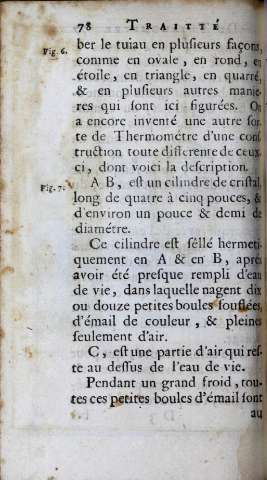 78 TRAITTÉ
Fig. 6. ber le tuiau en plusieurs façons,
comme en ovale, en rond, en
étoile, en triangle, en quarré,
& en plusieurs autres manie-
res qui sont ici figurées. On
a encore inventé une autre sor-
te de Thermométre d'une cons
truction toute differente de ceux-
ci, dont voici la description.
Fig. 7. A B, est un cilindre de cristal,
long de quatre à cinq pouces, &
d'environ un pouce & demi de
diamétre.
Ce cilindre est séllé hermeti-
quement en A & en B, aprés
avoir été presque rempli d'eau
de vie, dans laquelle nagent dix
ou douze petites boules soufflées,
d'émail de couleur, & pleines
seulement d'air.
C, est une partie d'air qui res-
te au dessus de l'eau de vie.
Pendant un grand froid, tou-
tes ces petites boules d'émail sont
au